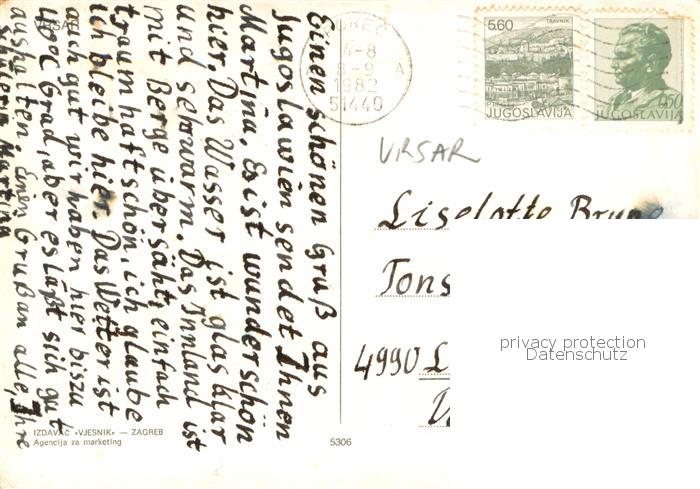 VRSAR
Einen schönen Gruß aus
Jugoslawien sendet Ihnen
Martina. Es ist wunderschön
hier. Das Wasser ist glasklar
und sehr warm. Das Innland ist
mit Berge übersäht, einfach
traumhaft schön, ich glaube
ich bleibe hier. Das Wetter ist
auch gut wir haben hier bis zu
Grad, aber es läßt sich gut
aushalten. Einen Gruß an alle, Ihre
Martina
IZDAVAČ «VJESNIK» — ZAGREB
Agencija za marketing
5306
4-8
8-9 A
1982
51440
5.60
TRAVNIK
JUGOSLAVIJA
0.50
JUGOSLAVIJA
VRSAR
Liselotte
Tons
4990 L
privacy protection
Datenschutz